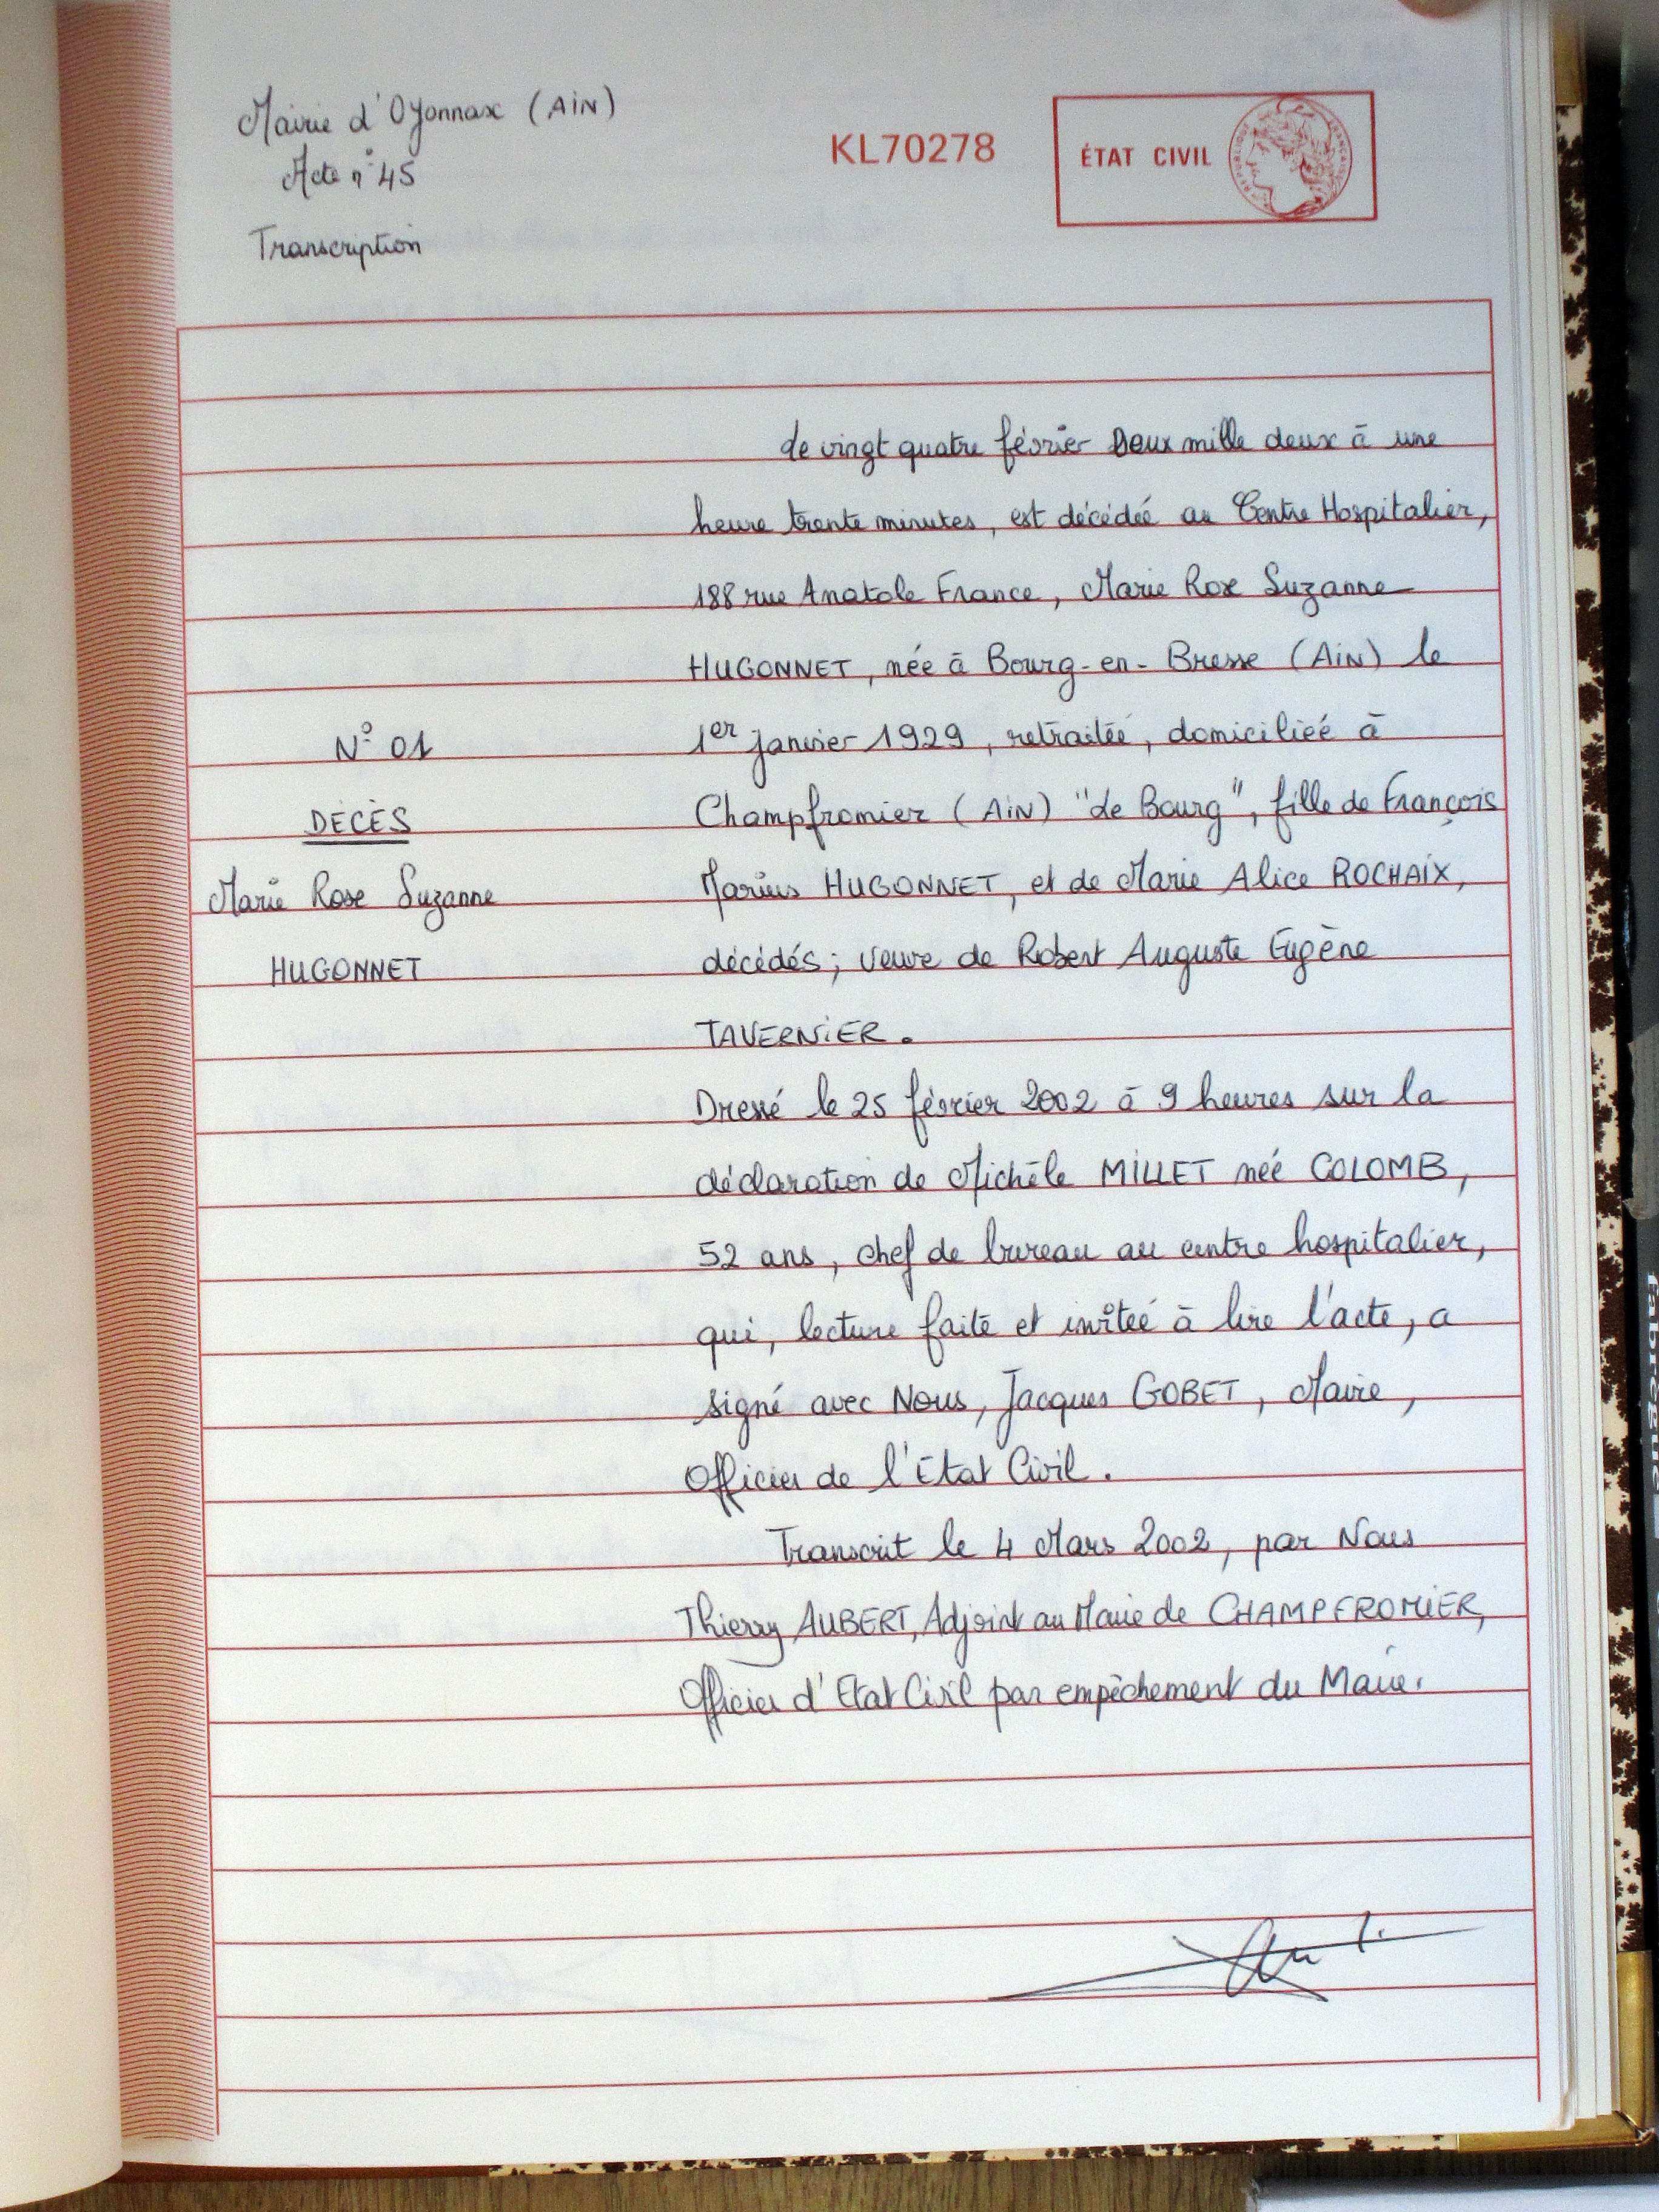 Mairie d'Oyonnax (AiN)
Acte n° 45
Transcription
KL70278
ÉTAT CIVIL
RÉPUBLIQUE FRANÇAISE
Le vingt quatre février Deux mille deux à une
heure trente minutes, est décédée au Centre Hospitalier,
188 rue Anatole France, Marie Rose Suzanne
HUGONNET, née à Bourg-en-Bresse (AiN) le
1er janvier 1929, retraitée, domiciliée à
Champfromier (AiN) "Le Bourg", fille de François
Marius HUGONNET, et de Marie Alice ROCHAIX,
décédés; veuve de Robert Auguste Eugène
TAVERNiER.
Dressé le 25 février 2002 à 9 heures sur la
déclaration de Michèle MiLLET née COLOMB,
52 ans, chef de bureau au centre hospitalier,
qui, lecture faite et invitée à lire l'acte, a
signé avec Nous, Jacques GOBET, Maire,
Officier de l'Etat Civil.
Transcrit le 4 Mars 2002, par Nous
Thierry AUBERT, Adjoint au Maire de CHAMPFROMiER,
Officier d'Etat Civil par empêchement du Maire.
N° 01
DÉCÈS
Marie Rose Suzanne
HUGONNET